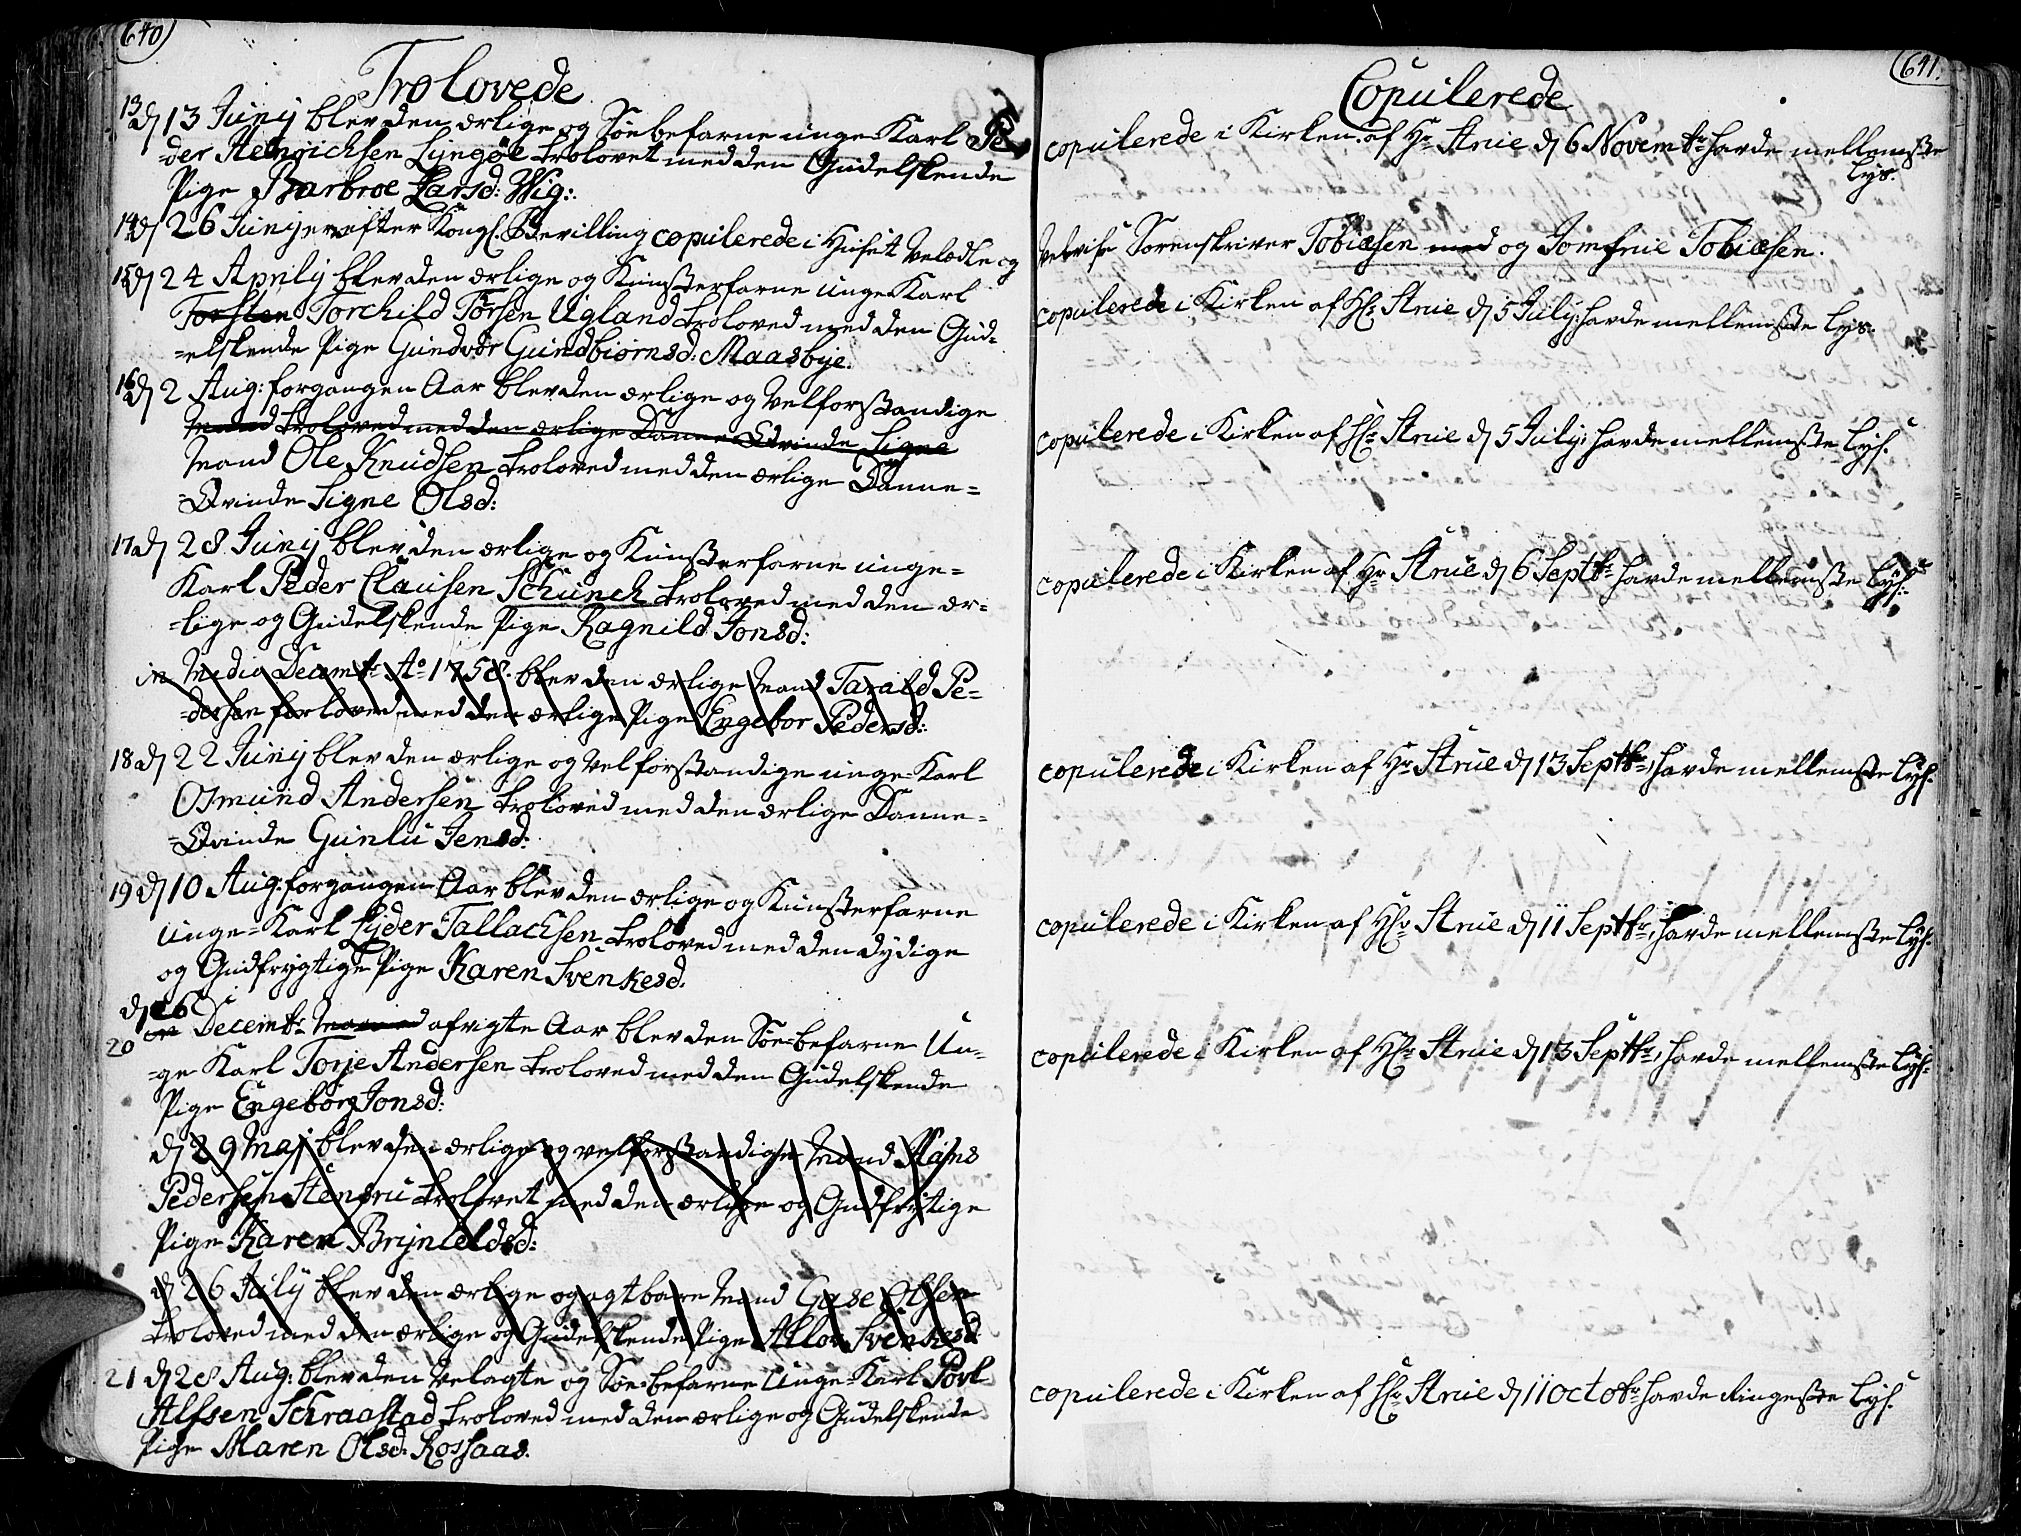 640)
Trolovede
13 d 13 Junij blev den ærlige og Söebefarne unge Karl Pe-
der Henrichsen Lyngøe trolovet med den Gudelskende
Pige Barbroe Larsd: Wig:
14 d 26 Junij er efter Kongl: Bevilling copulerede i Huset Velædle og
15 d 24 Aprily blev den ærlige og Kunsterfarne unge Karl
Torsten Torchild Torsen Ugland troloved med den Gud-
=elskende Pige Gundvor Gundbiørnsd: Maasbye.
16 d 2 Aug: forgangen Aar blev den ærlige og Velforstandige
Mand troloved med den ærlige Danne-Qvinde Signe
Mand Ole Knudsen troloved med den ærlige Danne=
=Qvinde Signe Olsd:
17 d 28 Junij blev den ærlige og Kunsterfarne unge=
Karl Peder Clausen Schunch troloved med den ær=
=lige og Gudelskende Pige Ragnild Jonsd:
in Medio Decembr Ao 1758. blev den ærlige Mand Tarald Pe=
=dersen forloved med den ærlige Pige Engebor Pedersd:
18 d 22 Junij blev den ærlige og Velforstandige unge=Karl
Osmund Andersen troloved med den ærlige Danne=
=Qvinde Gunlu Jensd:
19 d 10 Aug: forgangen Aar blev den ærlige og Kunsterfarne
unge=Karl Lyder Tallachsen troloved med den dydige
og Gudfrygtige Pige Karen Svenkesd.
d 26
20 Decembr: afvigte Aar blev den Söe=befarne Un=
=ge Karl Torje Andersen troloved med den Gudelskende
Pige Engebor Jonsd:
d 29 Maj blev den ærlige og velforstandige Mand Hans
Pedersen Stensru trolovet med den ærlige og Gudfrytige
Pige Karen Brynildsd:
d 26 July blev den ærlige og agtbare Mand Gase Olsen
troloved med den ærlige og Gudelskende Pige Allov Svenkesd
21 d 28 Aug: blev den Velagte og Söe=befarne Unge=Karl Povl
Alfsen Schraastad troloved med den ærlige og Gudelskende
Pige Maren Olsd: Rossaas.
641.
Copulerede
copulerede i Kirken af Hr Strue d 6 Novembr havde mellemste
Lys.
Velvise Sorenskriver Tobiæsen med og Jomfrue Tobiæsen.
copulerede i Kirken af Hr Strue d 5 July: havde mellemste Lys.
copulerede i Kirken af Hr Strue d 5 July: havde mellemste Lys.
copulerede i Kirken af Hr Strue d 6 Septbr havde mellemste Lys:
copulerede i Kirken af Hr Strue d 13 Septbr, havde mellemste Lys.
copulerede i Kirken af Hr Strue d 11 Septbr, havde mellemste Lys.
copulerede i Kirken af Hr Strue d 13 Septbr, havde mellemste Lys.
copulerede i Kirken af Hr Strue d 11 Octobr havde Ringeste Lys.